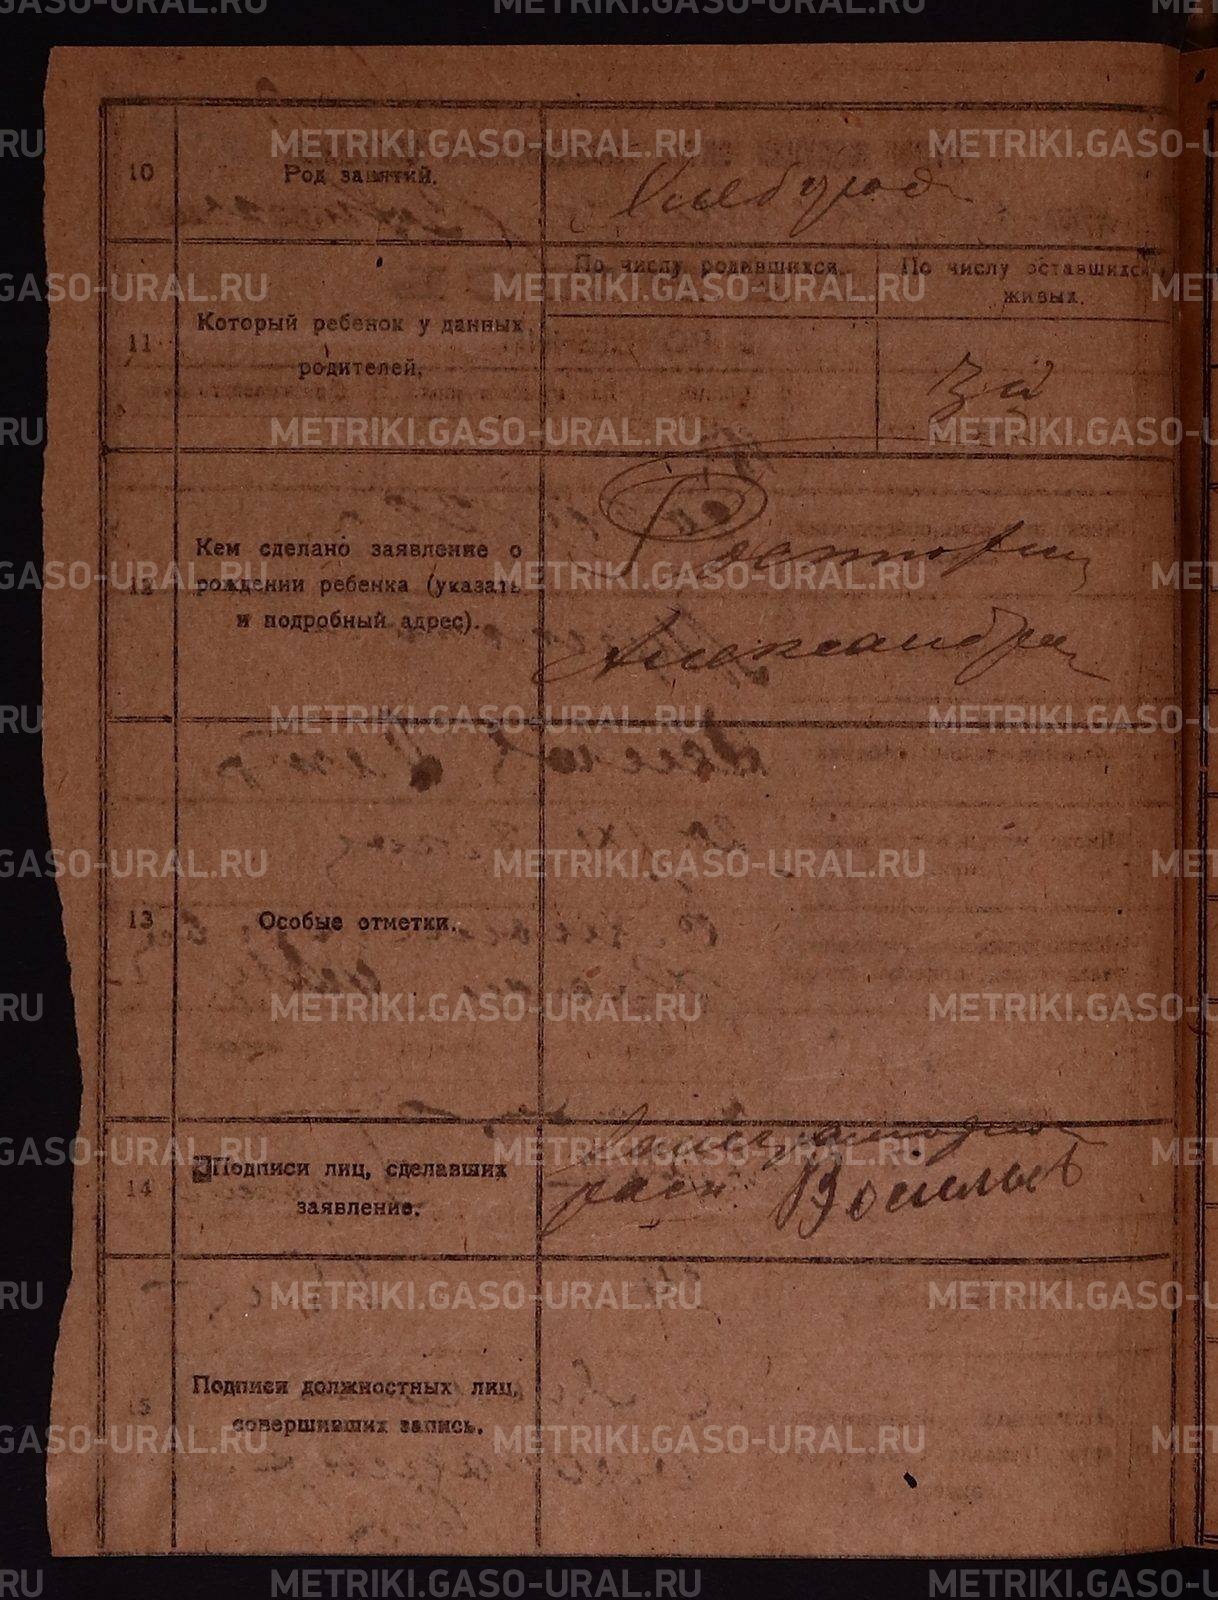 10
Род занятий.
Хлебород
11
Который ребенок у данных
родителей.
По числу родившихся.
По числу оставшихся
живых.
3й
12
Кем сделано заявление о
рождении ребенка (указать
и подробный адрес).
Александра
13
Особые отметки.
14
Подписи лиц, сделавших
заявление.
расп. Васильев
15
Подписи должностных лиц,
совершивших запись.
METRIKI.GASO-URAL.RU